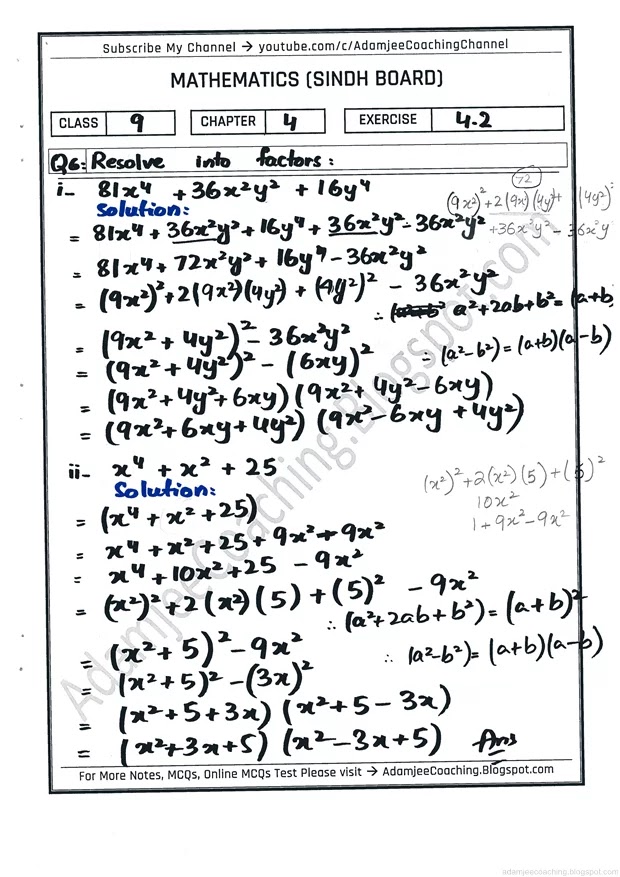 Subscribe My Channel → youtube.com/c/AdamjeeCoachingChannel
MATHEMATICS (SINDH BOARD)
CLASS 9 CHAPTER 4 EXERCISE 4.2
Q6: Resolve into factors:
i- 81x⁴ + 36x²y² + 16y⁴
72
(9x)² + 2(9x)(4y)+ (4y²)²
Solution:
= 81x⁴ + 36x²y² + 16y⁴ + 36x²y² - 36x²y²
+36x²y² - 36x²y
= 81x⁴ + 72x²y² + 16y⁴ - 36x²y²
= (9x²)² + 2(9x²)(4y²) + (4y²)² - 36x²y²
∴ a²+2ab+b² = (a+b
= (9x² + 4y²)² - 36x²y²
= (9x² + 4y²)² - (6xy)²
∴ (a²-b²) = (a+b)(a-b)
= (9x² + 4y² + 6xy) (9x² + 4y² - 6xy)
= (9x² + 6xy + 4y²) (9x² - 6xy + 4y²)
ii- x⁴ + x² + 25
(x²)² + 2(x²)(5) + (5)²
Solution:
10x²
= (x⁴ + x² + 25)
1 + 9x² - 9x²
= x⁴ + x² + 25 + 9x² + 9x²
= x⁴ + 10x² + 25 - 9x²
= (x²)² + 2(x²)(5) + (5)² - 9x²
∴ (a²+2ab+b²) = (a+b)²
= (x² + 5)² - 9x²
∴ (a²-b²) = (a+b)(a-b)
= (x² + 5)² - (3x)²
= (x² + 5 + 3x) (x² + 5 - 3x)
= (x² + 3x + 5) (x² - 3x + 5) Ans
For More Notes, MCQs, Online MCQs Test Please visit → AdamjeeCoaching.Blogspot.com
AdamjeeCoaching.Blogspot.com
adamjeecoaching.blogspot.com